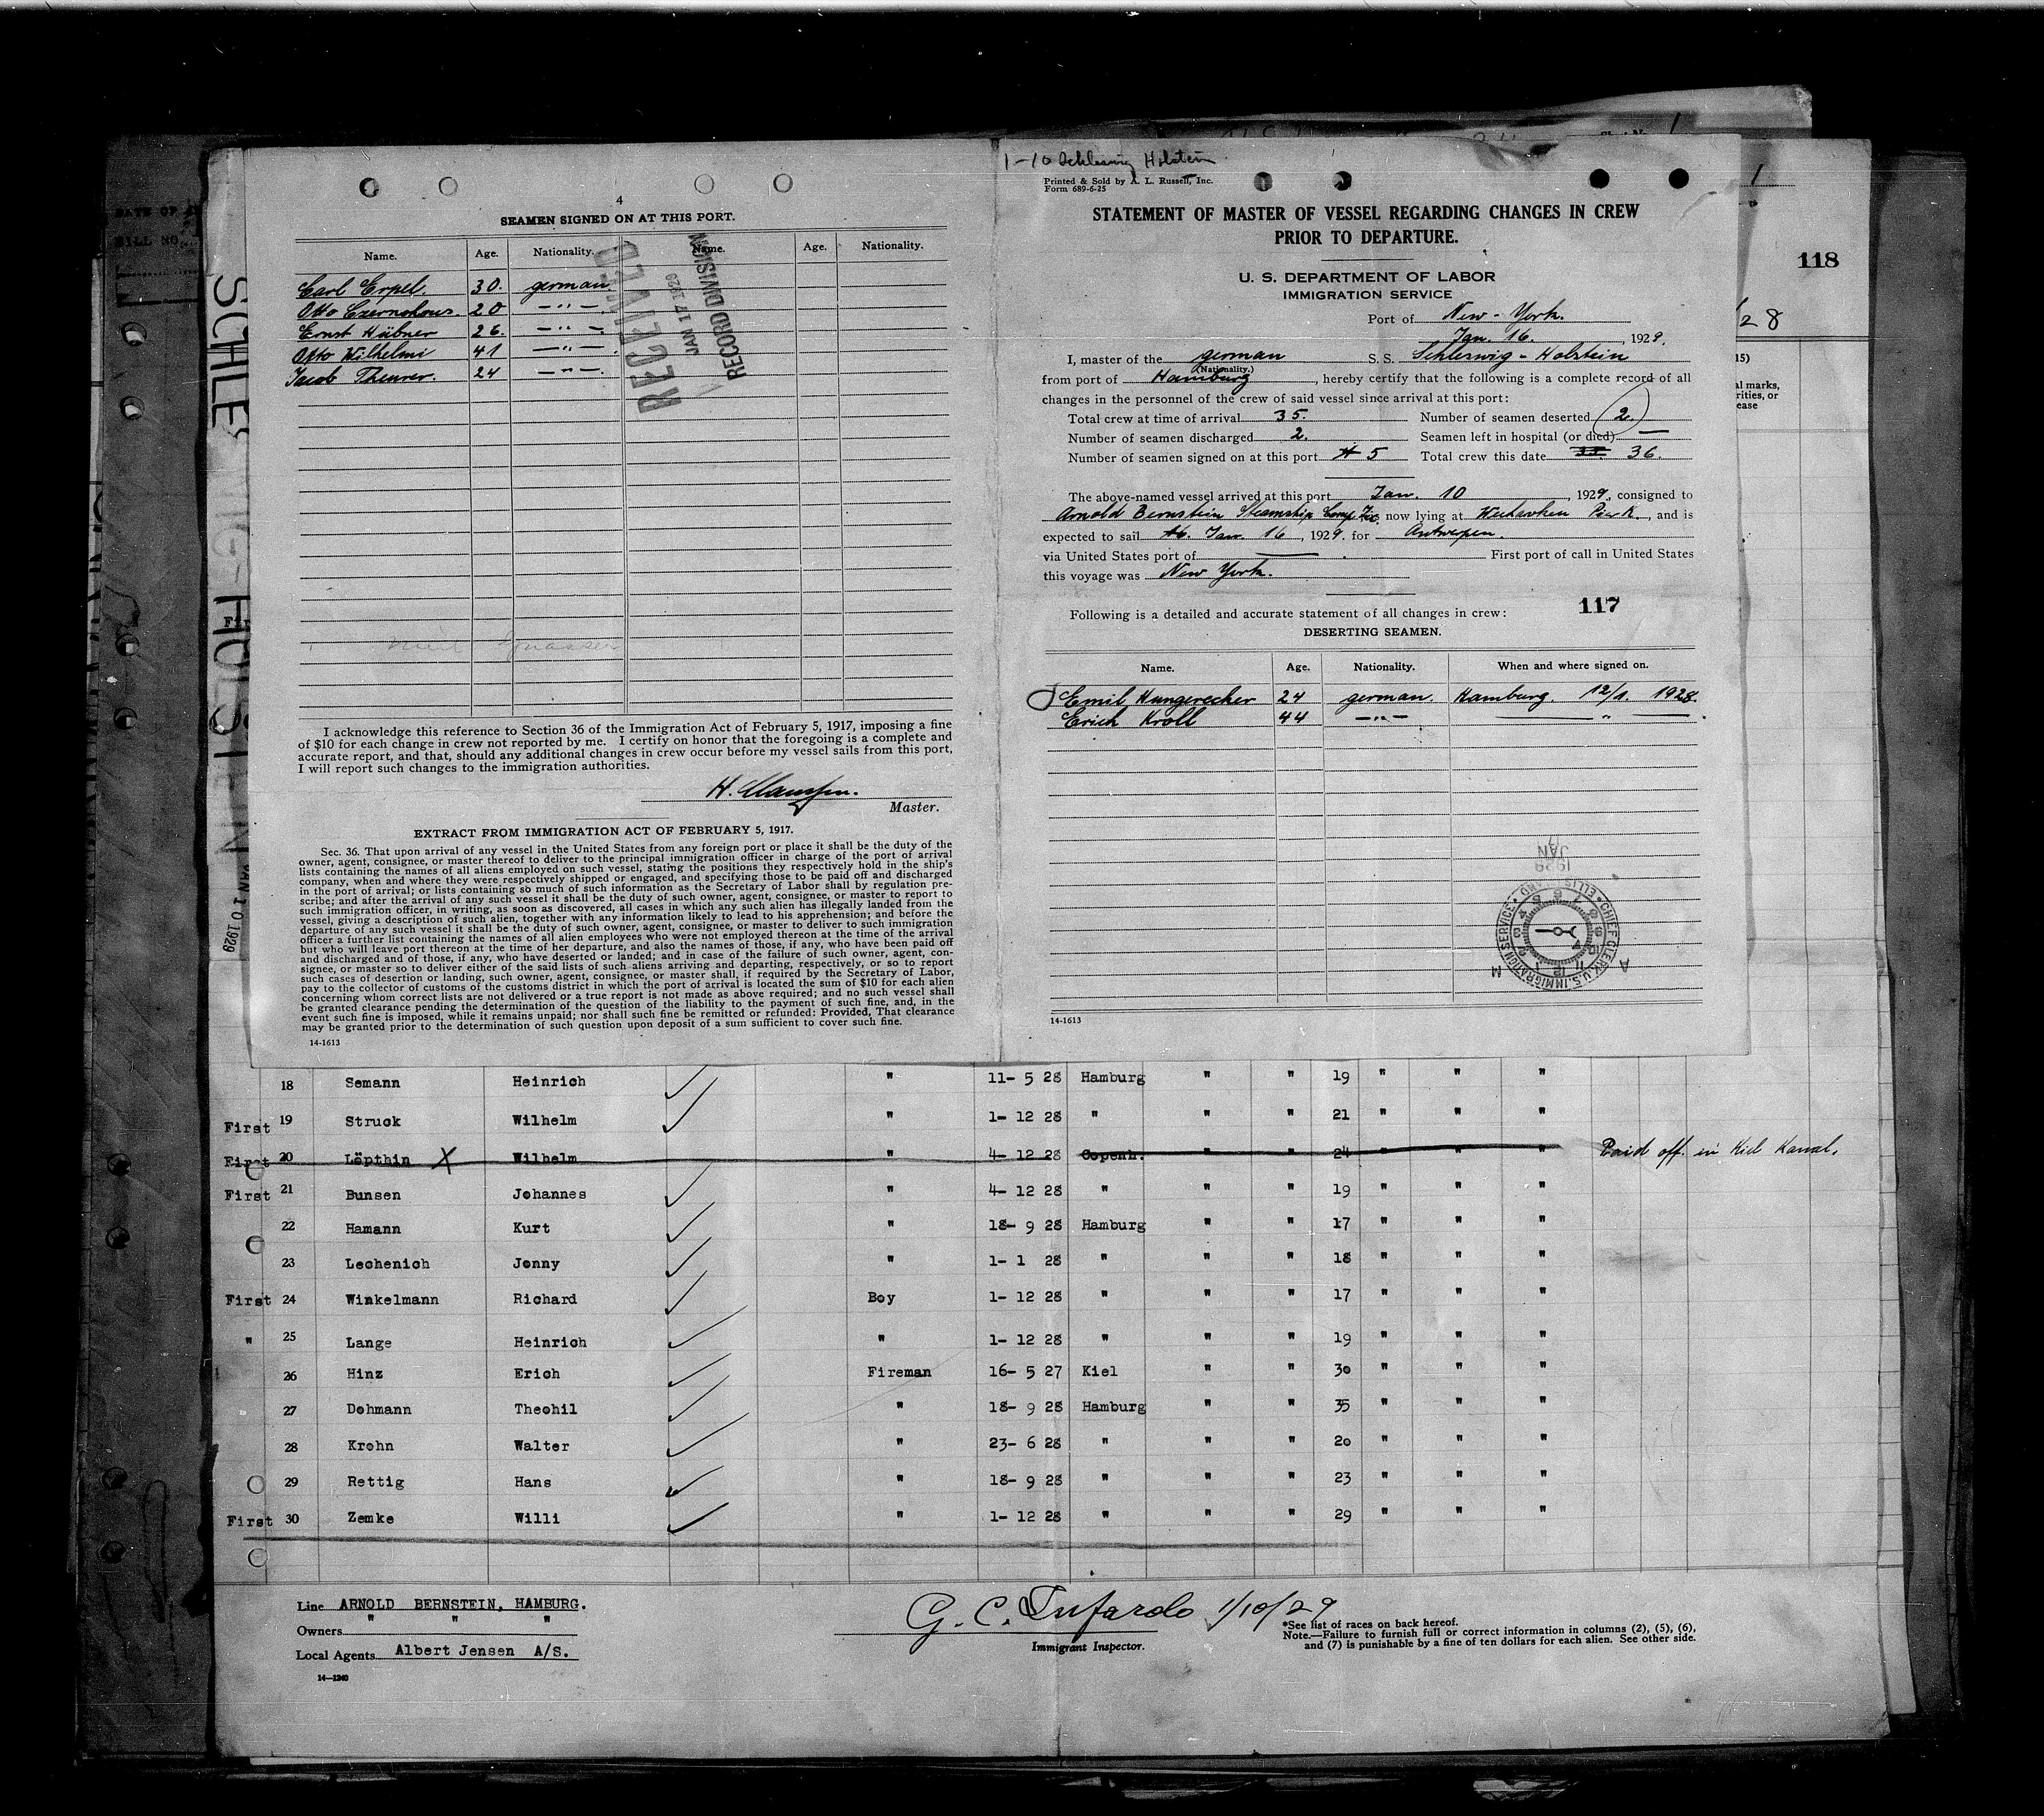 4
SEAMEN SIGNED ON AT THIS PORT.
Name. Age. Nationality. Name. Age. Nationality.
Carl Erpel. 30. german.
Otto Czernohous. 20 — " —
Ernst Hübner 26. — " —
Otto Wilhelmi 41 — " —
Jacob Theurer. 24 — " —
RECEIVED
JAN 17 1929
RECORD DIVISION
I acknowledge this reference to Section 36 of the Immigration Act of February 5, 1917, imposing a fine
of $10 for each change in crew not reported by me. I certify on honor that the foregoing is a complete and
accurate report, and that, should any additional changes in crew occur before my vessel sails from this port,
I will report such changes to the immigration authorities.
H. Claussen.
Master.
EXTRACT FROM IMMIGRATION ACT OF FEBRUARY 5, 1917.
Sec. 36. That upon arrival of any vessel in the United States from any foreign port or place it shall be the duty of the
owner, agent, consignee, or master thereof to deliver to the principal immigration officer in charge of the port of arrival
lists containing the names of all aliens employed on such vessel, stating the positions they respectively hold in the ship's
company, when and where they were respectively shipped or engaged, and specifying those to be paid off and discharged
in the port of arrival; or lists containing so much of such information as the Secretary of Labor shall by regulation pre-
scribe; and after the arrival of any such vessel it shall be the duty of such owner, agent, consignee, or master to report to
such immigration officer, in writing, as soon as discovered, all cases in which any such alien has illegally landed from the
vessel, giving a description of such alien, together with any information likely to lead to his apprehension; and before the
departure of any such vessel it shall be the duty of such owner, agent, consignee, or master to deliver to such immigration
officer a further list containing the names of all alien employees who were not employed thereon at the time of the arrival
but who will leave port thereon at the time of her departure, and also the names of those, if any, who have been paid off
and discharged and of those, if any, who have deserted or landed; and in case of the failure of such owner, agent, con-
signee, or master so to deliver either of the said lists of such aliens arriving and departing, respectively, or so to report
such cases of desertion or landing, such owner, agent, consignee, or master shall, if required by the Secretary of Labor,
pay to the collector of customs of the customs district in which the port of arrival is located the sum of $10 for each alien
concerning whom correct lists are not delivered or a true report is not made as above required; and no such vessel shall
be granted clearance pending the determination of the question of the liability to the payment of such fine, and, in the
event such fine is imposed, while it remains unpaid; nor shall such fine be remitted or refunded: Provided, That clearance
may be granted prior to the determination of such question upon deposit of a sum sufficient to cover such fine.
14-1613
1-10 Schleswig Holstein
Printed & Sold by A. L. Russell, Inc.
Form 689-6-25
STATEMENT OF MASTER OF VESSEL REGARDING CHANGES IN CREW
PRIOR TO DEPARTURE.
U. S. DEPARTMENT OF LABOR
IMMIGRATION SERVICE
Port of New-York.
Jan. 16. , 1929.
I, master of the german S. S. Schleswig-Holstein
(Nationality.)
from port of Hamburg , hereby certify that the following is a complete record of all
changes in the personnel of the crew of said vessel since arrival at this port:
Total crew at time of arrival 35. Number of seamen deserted 2.
Number of seamen discharged 2. Seamen left in hospital (or died) —
Number of seamen signed on at this port 5 Total crew this date 36.
The above-named vessel arrived at this port Jan. 10 , 1929, consigned to
Arnold Bernstein Steamship Comp. Inc. now lying at Weehawken Pier K. , and is
expected to sail Jan. 16 , 1929. for Antwerpen.
via United States port of — . First port of call in United States
this voyage was New York.
Following is a detailed and accurate statement of all changes in crew: 117
DESERTING SEAMEN.
Name. Age. Nationality. When and where signed on.
Emil Hungerecker 24 german. Hamburg. 12/1. 1928.
Erich Kroll 44 — " — — " — .
1929
JAN 17
CHIEF CLERK, U.S. IMMIGRATION SERVICE • ELLIS ISLAND •
14-1613
118
28
15)
al marks,
rities, or
ease
SCHLESWIG-HOLSTEIN
JAN 10 1929
18 Semann Heinrich " 11- 5 28 Hamburg " " 19 " " "
First 19 Struck Wilhelm " 1- 12 28 " " " 21 " " "
First 20 Löpthin X Wilhelm " 4- 12 28 Copenh. " " 24 " " " Paid off. in Kiel Kanal.
First 21 Bunsen Johannes " 4- 12 28 " " " 19 " " "
22 Hamann Kurt " 18- 9 28 Hamburg " " 17 " " "
23 Lechenich Jonny " 1- 1 28 " " " 18 " " "
First 24 Winkelmann Richard Boy 1- 12 28 " " " 17 " " "
" 25 Lange Heinrich " 1- 12 28 " " " 19 " " "
26 Hinz Erich Fireman 16- 5 27 Kiel " " 30 " " "
27 Dohmann Theohil " 18- 9 28 Hamburg " " 35 " " "
28 Krohn Walter " 23- 6 28 " " " 20 " " "
29 Rettig Hans " 18- 9 28 " " " 23 " " "
First 30 Zemke Willi " 1- 12 28 " " " 29 " " "
Line ARNOLD BERNSTEIN, HAMBURG.
Owners " " "
Local Agents Albert Jensen A/S.
14—1240
G. C. Tufardo 1/10/29
Immigrant Inspector.
*See list of races on back hereof.
Note.—Failure to furnish full or correct information in columns (2), (5), (6),
and (7) is punishable by a fine of ten dollars for each alien. See other side.